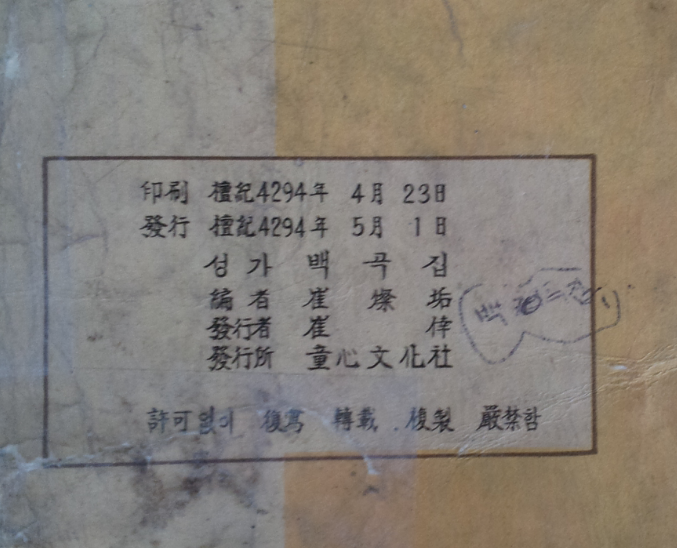 印刷 檀紀4294年 4月 23日
發行 檀紀4294年 5月 1日
성가백곡집
編者 崔燦垢
發行者 崔倖
發行所 童心文化社
許可없이 複寫 轉載. 複製 嚴禁함